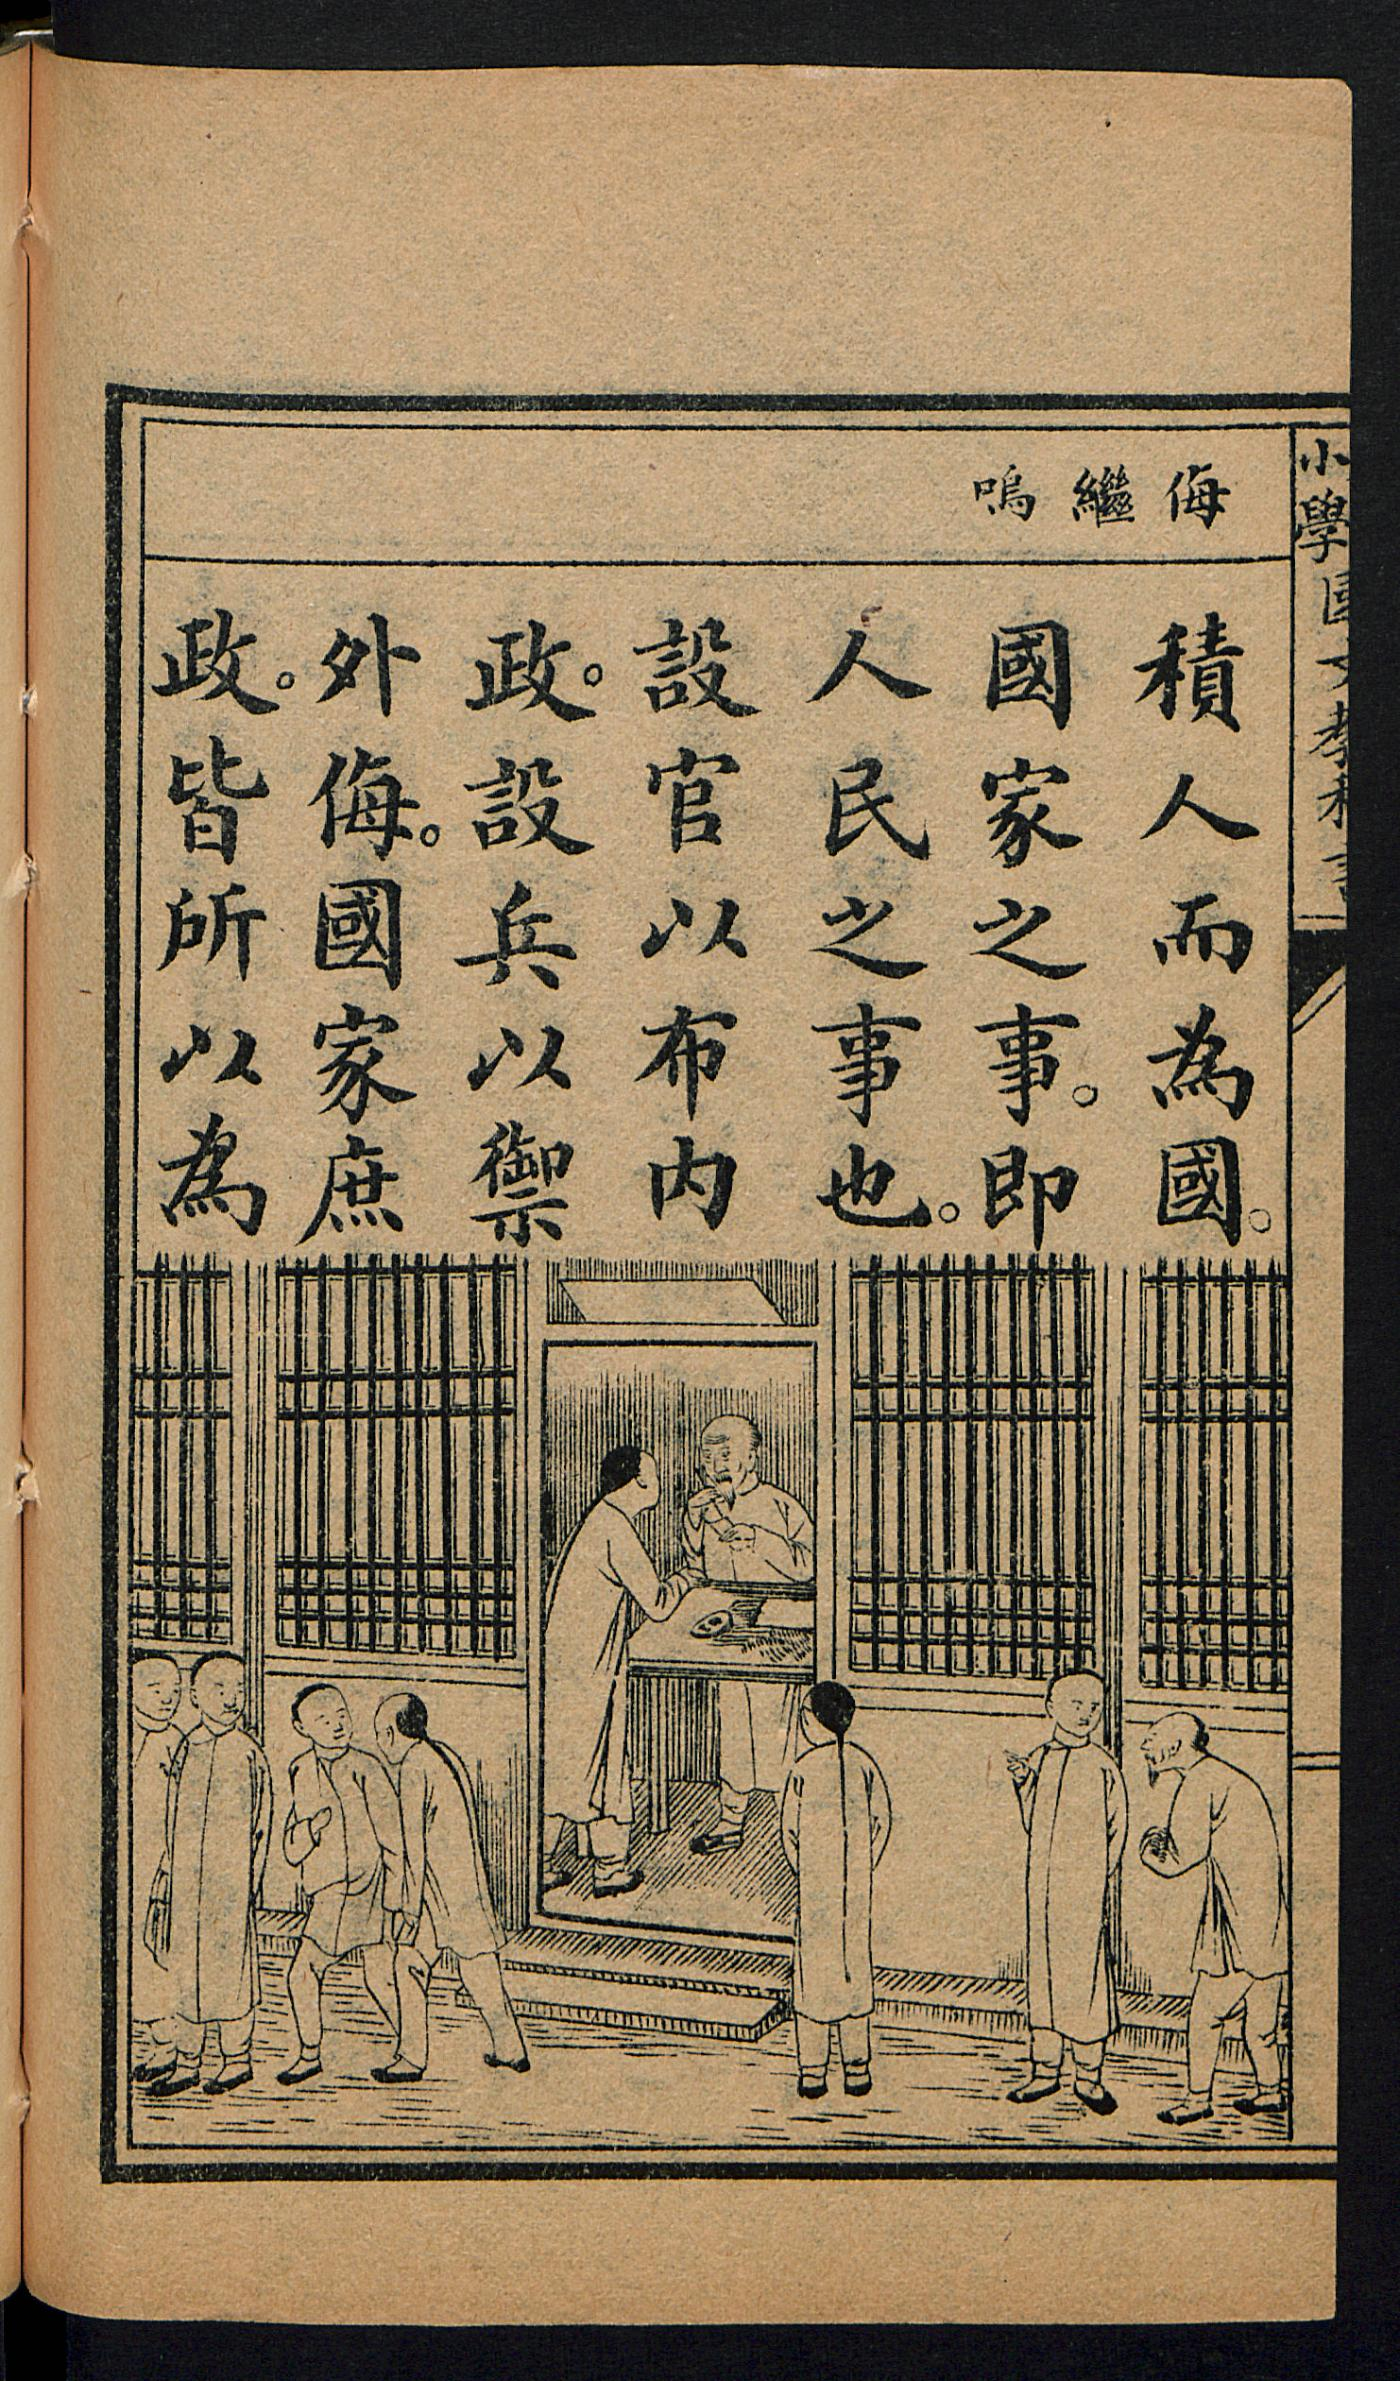 小學國文教科書
侮 繼 嗚
積人而為國。
國家之事。即
人民之事也。
設官以布內
政。設兵以禦
外侮。國家庶
政。皆所以為